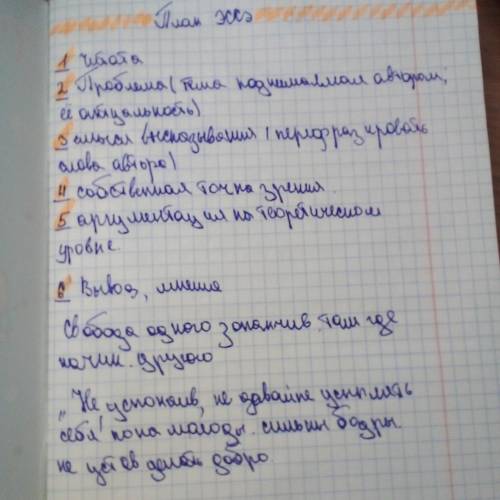 План эссэ
1 Цитата
2 Проблема (тема поднемаемая автором,
её актуальность)
3 смысл высказывания (перефразировать
слова автора)
4 собственная точка зрения.
5 аргументация на теоретическом
уровне.
6 Вывод, мнение
Свобода одного заканчив. там где
начин. другого
„Не успокаив, не давайте усыплять
себя! пока молоды. сильны бодры.
не устав делать добро.